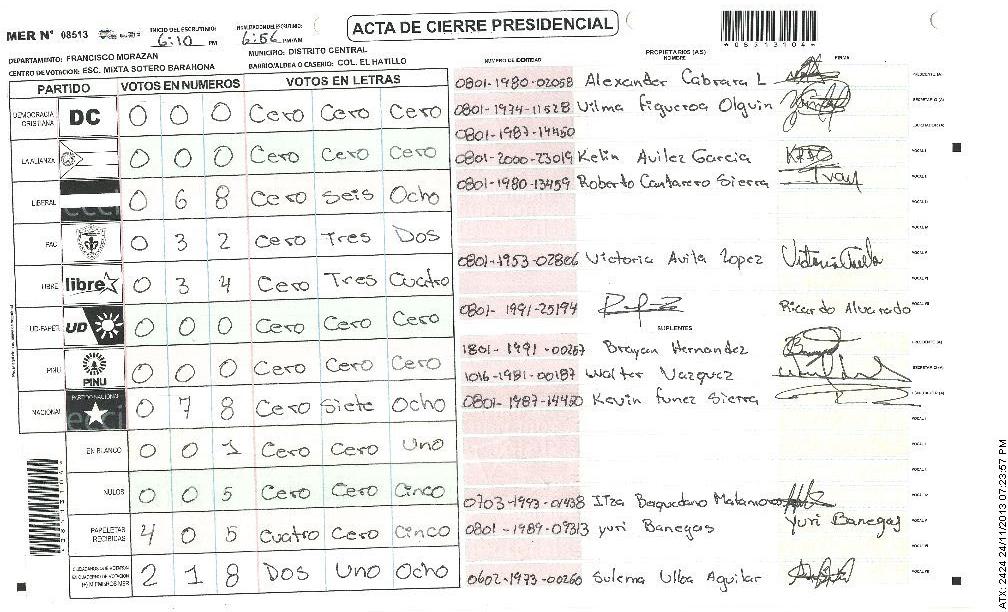 ACTA DE CIERRE PRESIDENCIAL
MER N° 08513
INICIO DEL ESCRUTINIO: 6:10 PM
FINALIZACION DEL ESCRUTINIO: 6:56 PM/AM
*08513104*
DEPARTAMENTO: FRANCISCO MORAZAN
MUNICIPIO: DISTRITO CENTRAL
CENTRO DE VOTACION: ESC. MIXTA SOTERO BARAHONA
BARRIO/ALDEA O CASERIO: COL. EL HATILLO
PARTIDO VOTOS EN NUMEROS VOTOS EN LETRAS
DEMOCRACIA CRISTIANA DC 0 0 0 Cero Cero Cero
LA ALIANZA 0 0 0 Cero Cero Cero
LIBERAL 0 6 8 Cero Seis Ocho
PAC 0 3 2 Cero Tres Dos
LIBRE libre 0 3 4 Cero Tres Cuatro
UD-FAPER UD 0 0 0 Cero Cero Cero
PINU PINU 0 0 0 Cero Cero Cero
NACIONAL PARTIDO NACIONAL 0 7 8 Cero Siete Ocho
EN BLANCO 0 0 1 Cero Cero Uno
NULOS 0 0 5 Cero Cero Cinco
PAPELETAS RECIBIDAS 4 0 5 Cuatro Cero Cinco
2 1 8 Dos Uno Ocho
NUMERO DE IDENTIDAD PROPIETARIOS (AS) NOMBRE FIRMA
0801-1980-02058 Alexander Cabrara L PRESIDENTE (A)
0801-1974-11528 Vilma Figueroa Olguin SECRETARIO (A)
0801-1987-14450 ESCRUTADOR (A)
0801-2000-23019 Kelin Avilez Garcia VOCAL I
0801-1980-13459 Roberto Cantarero Sierra Ivan VOCAL II
VOCAL III
VOCAL IV
0801-1953-02806 Victoria Avila Lopez VOCAL V
VOCAL VI
0801-1991-25194 Ricardo Alvarado VOCAL VII
SUPLENTES
1801-1991-00267 Brayan Hernandez PRESIDENTE (A)
1016-1981-00187 Walter Vazquez SECRETARIO (A)
0801-1987-14450 Kevin Funez Sierra ESCRUTADOR (A)
VOCAL I
VOCAL II
VOCAL III
0703-1993-01438 Itza Baquedano Matamoros VOCAL IV
0801-1989-09313 yuri Banegas yuri Banegas VOCAL V
VOCAL VI
0602-1973-00260 Sulema Ulloa Aguilar VOCAL VII
ATX: 2424 24/11/2013 07:23:57 PM